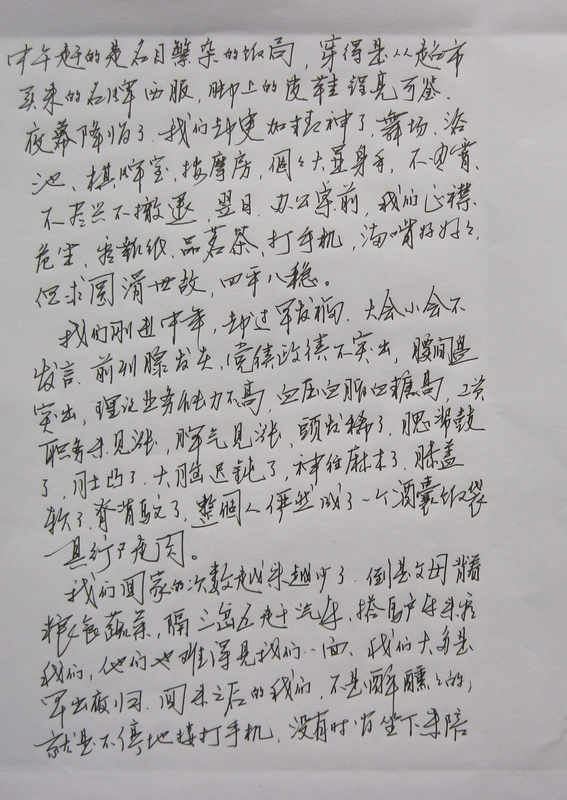 中午赶的是名目繁杂的饭局，穿得是从超市
买来的名牌西服，脚上的皮鞋锃亮可鉴，
夜幕降临了，我们却更加精神了，舞场、浴
池、棋牌室、按摩房，個々大显身手，不
不尽兴不撤退，翌日，办公桌前，我们正襟
危坐，看報纸、品茗茶、打手机，满嘴好好々，
但求圆滑世故，四平八稳。
我们刚到中年，却过早发福，大会小会不
发言，前列腺发炎，党绩政绩不突出，腰间盘
突出，理论业务能力不高，血压血脂血糖高，工资
职务未见涨，脾气见涨，頭发稀了，腮帮鼓
了，肚凸了，大脑迟钝了，神经麻木了，膝盖
软了，脊背驼了，整個人俨然成了一个酒囊饭袋
具行尸走肉。
我们回家的次数越来越少了，倒是父母背着
粮食蔬菜，隔三岔五赶汽车，搭馬车来看
我们，他们也难得见我们一面，我们大多是
早出夜归，回来之后的我们，不是醉醺々的，
就是不停地接打手机，没有时间坐下来陪